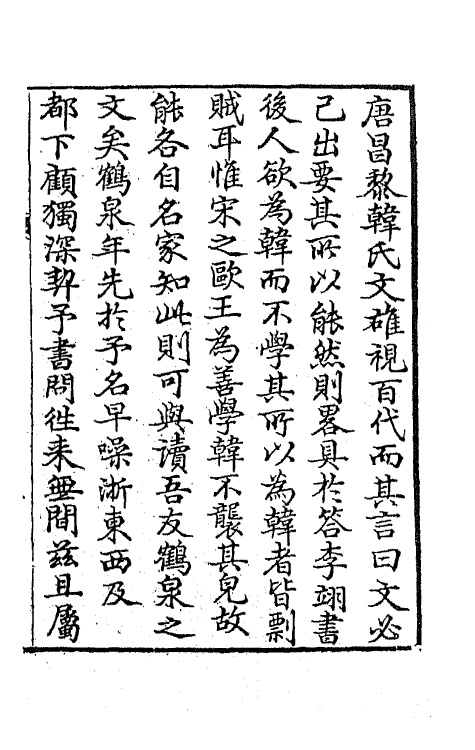 唐昌黎韓氏文雄視百代而其言曰文必
己出要其所以能然則畧具於答李翊書
後人欲為韓而不學其所以為韓者皆剽
賊耳惟宋之歐王為善學韓不襲其皃故
能各自名家知此則可與讀吾友鶴泉之
文矣鶴泉年先於予名早噪浙東西及
都下顧獨深契予書問徃来無間茲且屬